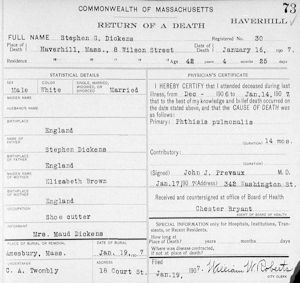 COMMONWEALTH OF MASSACHUSETTS 73
RETURN OF A DEATH HAVERHILL
FULL NAME Stephen G. Dickens Registered No. 30
Place of Death Haverhill, Mass., 8 Wilson Street Date of Death January 16, 1907.
Residence Age 42 years 4 months 25 days
STATISTICAL DETAILS
SEX COLOR SINGLE, MARRIED, WIDOWED, OR DIVORCED
Male White Married
MAIDEN NAME
HUSBAND'S NAME
BIRTHPLACE
England
NAME OF FATHER
Stephen Dickens
BIRTHPLACE OF FATHER
England
MAIDEN NAME OF MOTHER
Elizabeth Brown
BIRTHPLACE OF MOTHER
England
OCCUPATION
Shoe cutter
INFORMANT
Mrs. Maud Dickens
PLACE OF BURIAL OR REMOVAL DATE
Amesbury, Mass. Jan. 19, 1907
UNDERTAKER ADDRESS
C. A. Twombly 18 Court St.
PHYSICIAN'S CERTIFICATE
I HEREBY CERTIFY that I attended deceased during last
illness, from Dec - 1906 to Jan. 14, 1907
that to the best of my knowledge and belief death occurred on the
date stated above, and that the CAUSE OF DEATH was as
follows:
Primary: Phthisis pulmonalis
DURATION 14 mos.
Contributory:
DURATION
(Signed) John J. Prevaux M. D.
Jan. 17 1907 (Address) 342 Washington St.
Received and countersigned at office of Board of Health
Chester Bryant
AGENT OF BOARD OF HEALTH
SPECIAL INFORMATION only for Hospitals, Institutions, Transients, or Recent Residents.
How long at Place of Death? years months days
Where was disease contracted,
if not at place of death?
Filed
Jan. 19, 1907 William W. Roberts
CITY CLERK